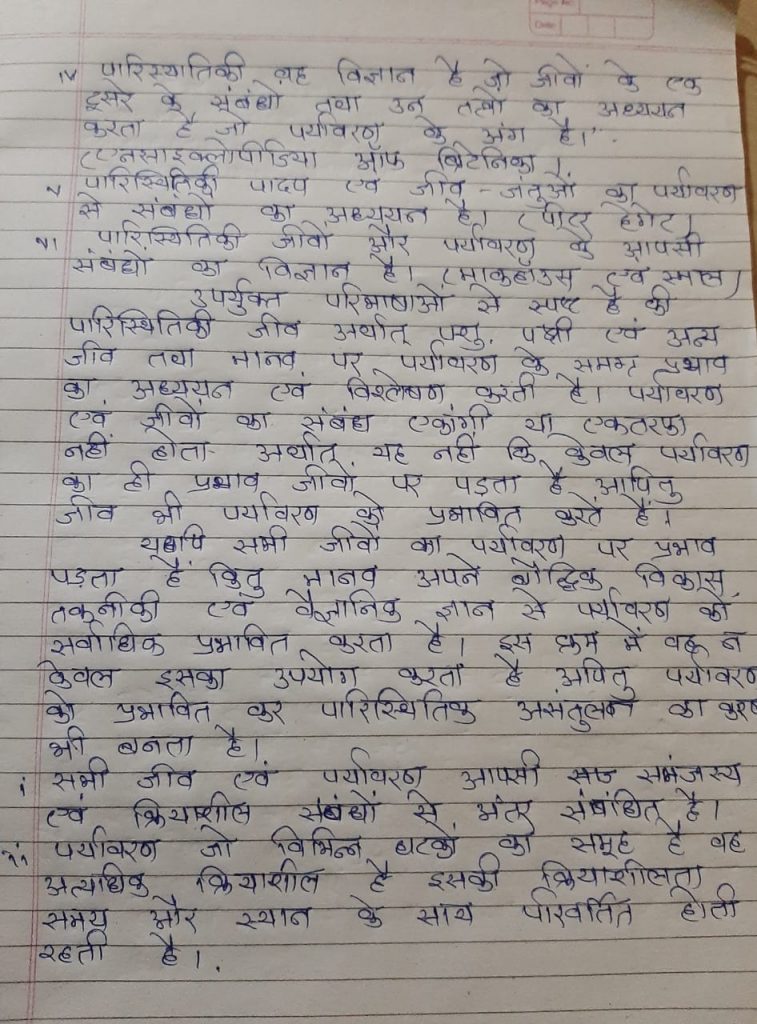 iv पारिस्थातिकी वह विज्ञान है जो जीवों के एक
दूसरे के संबंधो तथा उन तत्वो का अध्ययन
करता है जो पर्यावरण के अंग है।"
(एनसाइक्लोपीडिया ऑफ ब्रिटेनिका।
v पारिस्थितिकी पादप एवं जीव - जंतुओं का पर्यावरण
से संबंधो का अध्ययन है। (पीटर हेगेट।
vi पारिस्थितिकी जीवों और पर्यावरण के आपसी
संबंधो का विज्ञान है। (माकहाउस एवं स्माल)
उपर्युक्त परिभाषाओं से स्पष्ट है की
पारिस्थितिकी जीव अर्थात् पशु, पक्षी एवं अन्य
जीव तथा मानव पर पर्यावरण के समग्र प्रभाव
का अध्ययन एवं विश्लेषण करती है। पर्यावरण
एवं जीवों का संबंध एकांगी या एकतरफा
नहीं होता- अर्थात् यह नहीं कि केवल पर्यावरण
का ही प्रभाव जीवों पर पड़ता है आपितु
जीव भी पर्यावरण को प्रभावित करते हैं।
यद्यपि सभी जीवों का पर्यावरण पर प्रभाव
पड़ता है किंतु मानव अपने बौद्धिक विकास,
तकनीकी एवं वैज्ञानिक ज्ञान से पर्यावरण को
सर्वाधिक प्रभावित करता है। इस क्रम में वह न
केवल इसका उपयोग करता है अपितु पर्यावरण
को प्रभावित कर पारिस्थितिक असंतुलन का कारण
भी बनता है।
i सभी जीव एवं पर्यावरण आपसी समंजस्य
एवं क्रियाशील संबंधों से अंतर संबंधित है।
ii पर्यावरण जो विभिन्न घटको का समूह है वह
अत्याधिक क्रियाशील है इसकी क्रियाशीलता
समय और स्थान के साथ परिवर्तित होती
रहती है।